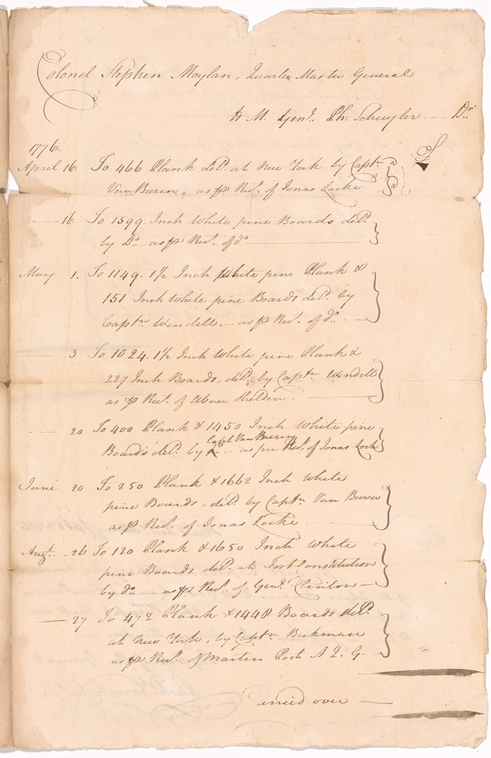 Colonel Stephen Moylan, Quarter Master General
to M. Genl. Ph. Schuyler — Dr.
1776.
April 16. To 466 Plank deld. at New York by Captn.
Van Buren, as p Rct. of Jonas Locke
— 16 To 1599 Inch White pine Boards deld.
by Do. as p Rct. of do.
May 1. To 1149. 1½ Inch White pine Plank &
151 Inch White pine Boards deld. by
Captn. Wendell — as p Rct. of do.
3 To 1024. 1½ Inch White pine Plank &
227 Inch Boards, deld. by Captn. Wendell
as p Rct. of Abner
— 20 To 400 Plank & 1450 Inch White pine
Captn Van Buren
Boards deld. by — as per Rct. of Jonas Lock
June 20 To 250 Plank & 1662 Inch White
pine Boards, deld. by Captn. Van Buren
as p Rct. of Jonas Locke.
Augt. 26 To 120 Plank & 1650 Inch White
pine Boards deld. at Fort Constitution
by do. as p Rct. of Genl. Clinton
— 27 To 472 Plank & 1448 Boards deld.
at New York, by Captn. Beekman
as p Rct. of Martin Post A. Q. G.
over —